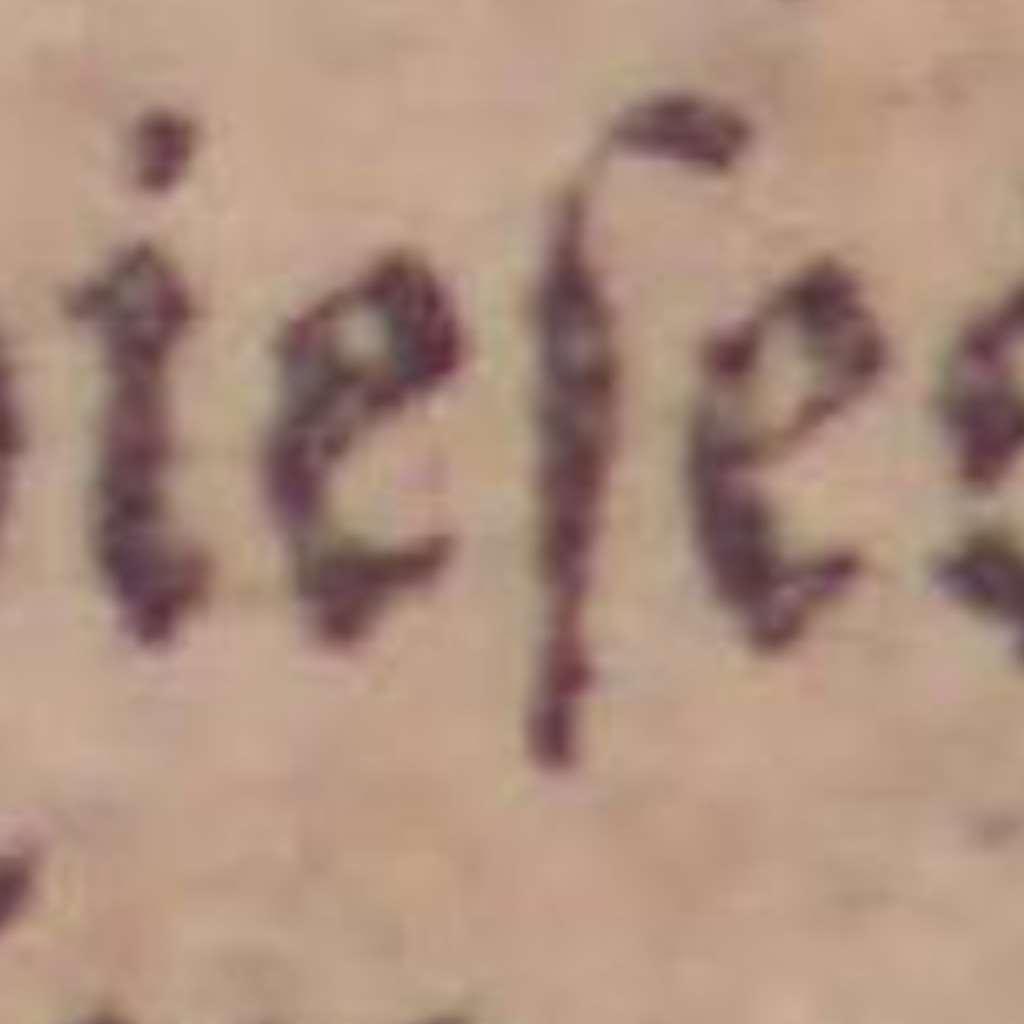 ieſes